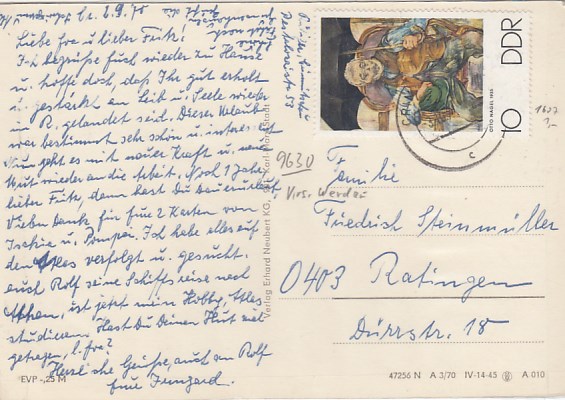 2.9.70
Liebe Eva u. lieber Fritz!
I-L begrüsse Euch wieder zu Hause
u. hoffe doch, daß Ihr gut erholt
u. gestärkt an Leib u. Seele wieder
in R. gelandet seid. Dieser Urlaub
war bestimmt sehr schön u. interessant
Nun geht es mit neuer Kraft u. neuem
Mut wieder an die Arbeit. Noch 1 Jahr,
lieber Fritz, dann hast Du Dauerurlaub
Vielen Dank für Eure 2 Karten von
Ischia u. Pompei. Ich habe alles auf
dem Atlas verfolgt u. gesucht.
auch Rolf seine Schiffsreise nach
Athen, ist jetzt mein Hobby, Atlas
studieren. Hast Du Deinen Hut viel
getragen, l. Eva?
Herzliche Grüße, auch an Rolf
Eure Irmgard.
EVP -,25 M
Verlag Erhard Neubert KG, Karl-Marx-Stadt
DDR
10
OTTO NAGEL
9630
Familie
Friedrich Steinmüller
0403 Ratingen
Dürrstr. 18
47256 N A 3/70 IV-14-45 A 010